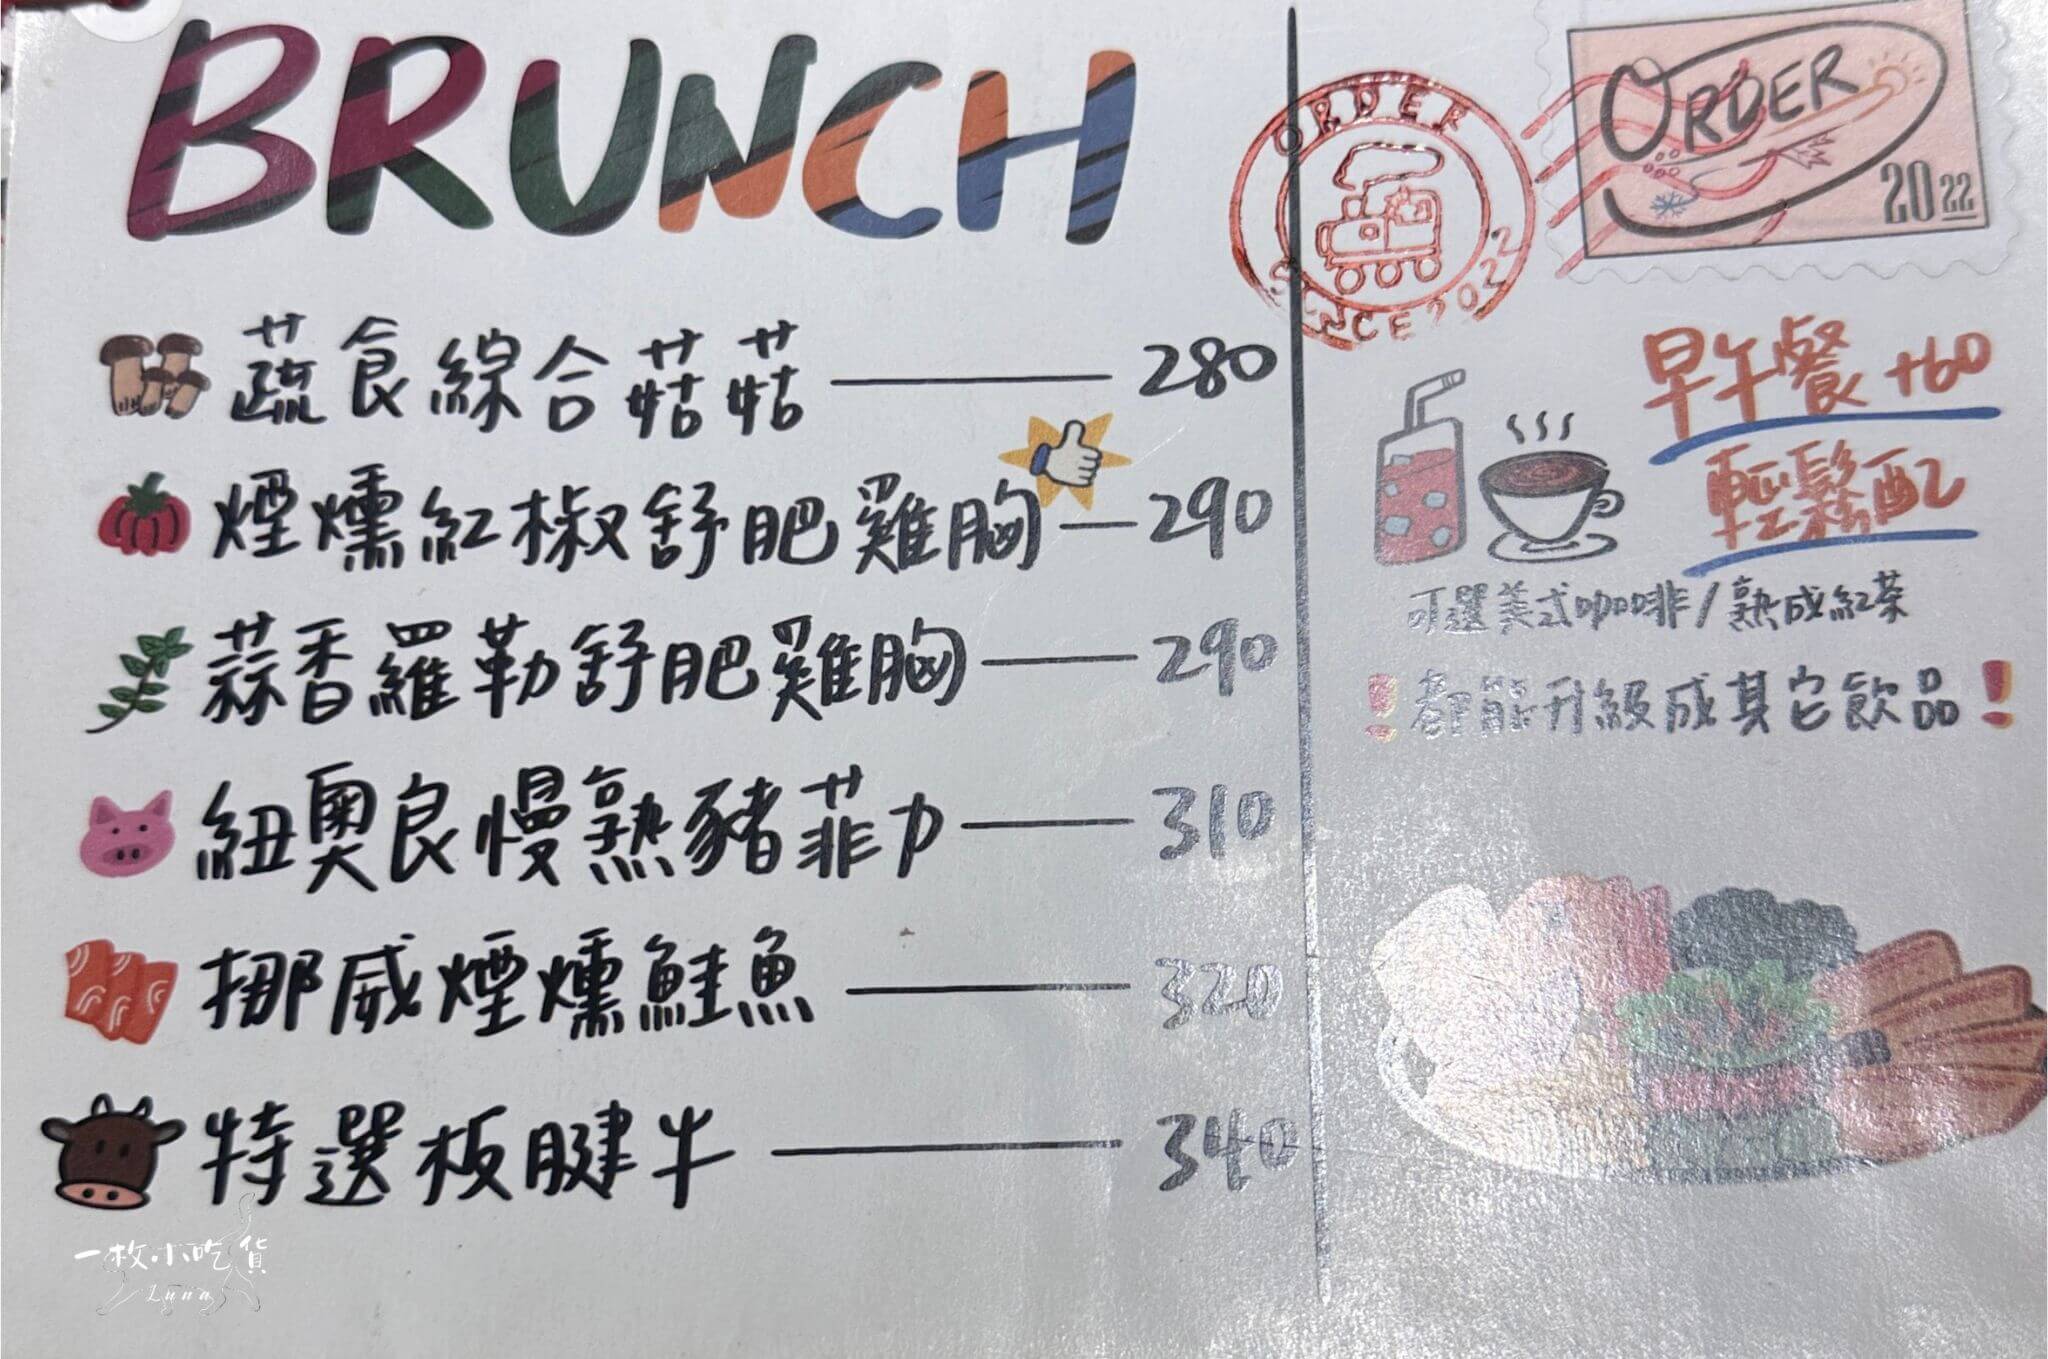 BRUNCH
蔬食綜合菇菇 280
煙燻紅椒舒肥雞胸 290
蒜香羅勒舒肥雞胸 290
紐奧良慢熟豬菲力 310
挪威煙燻鮭魚 320
特選板腱牛 340
ORDER
SINCE 2022
ORDER
2022
早午餐 +60
輕鬆配
可選美式咖啡/熟成紅茶
！都能升級成其它飲品！
一枚小吃貨
Luna